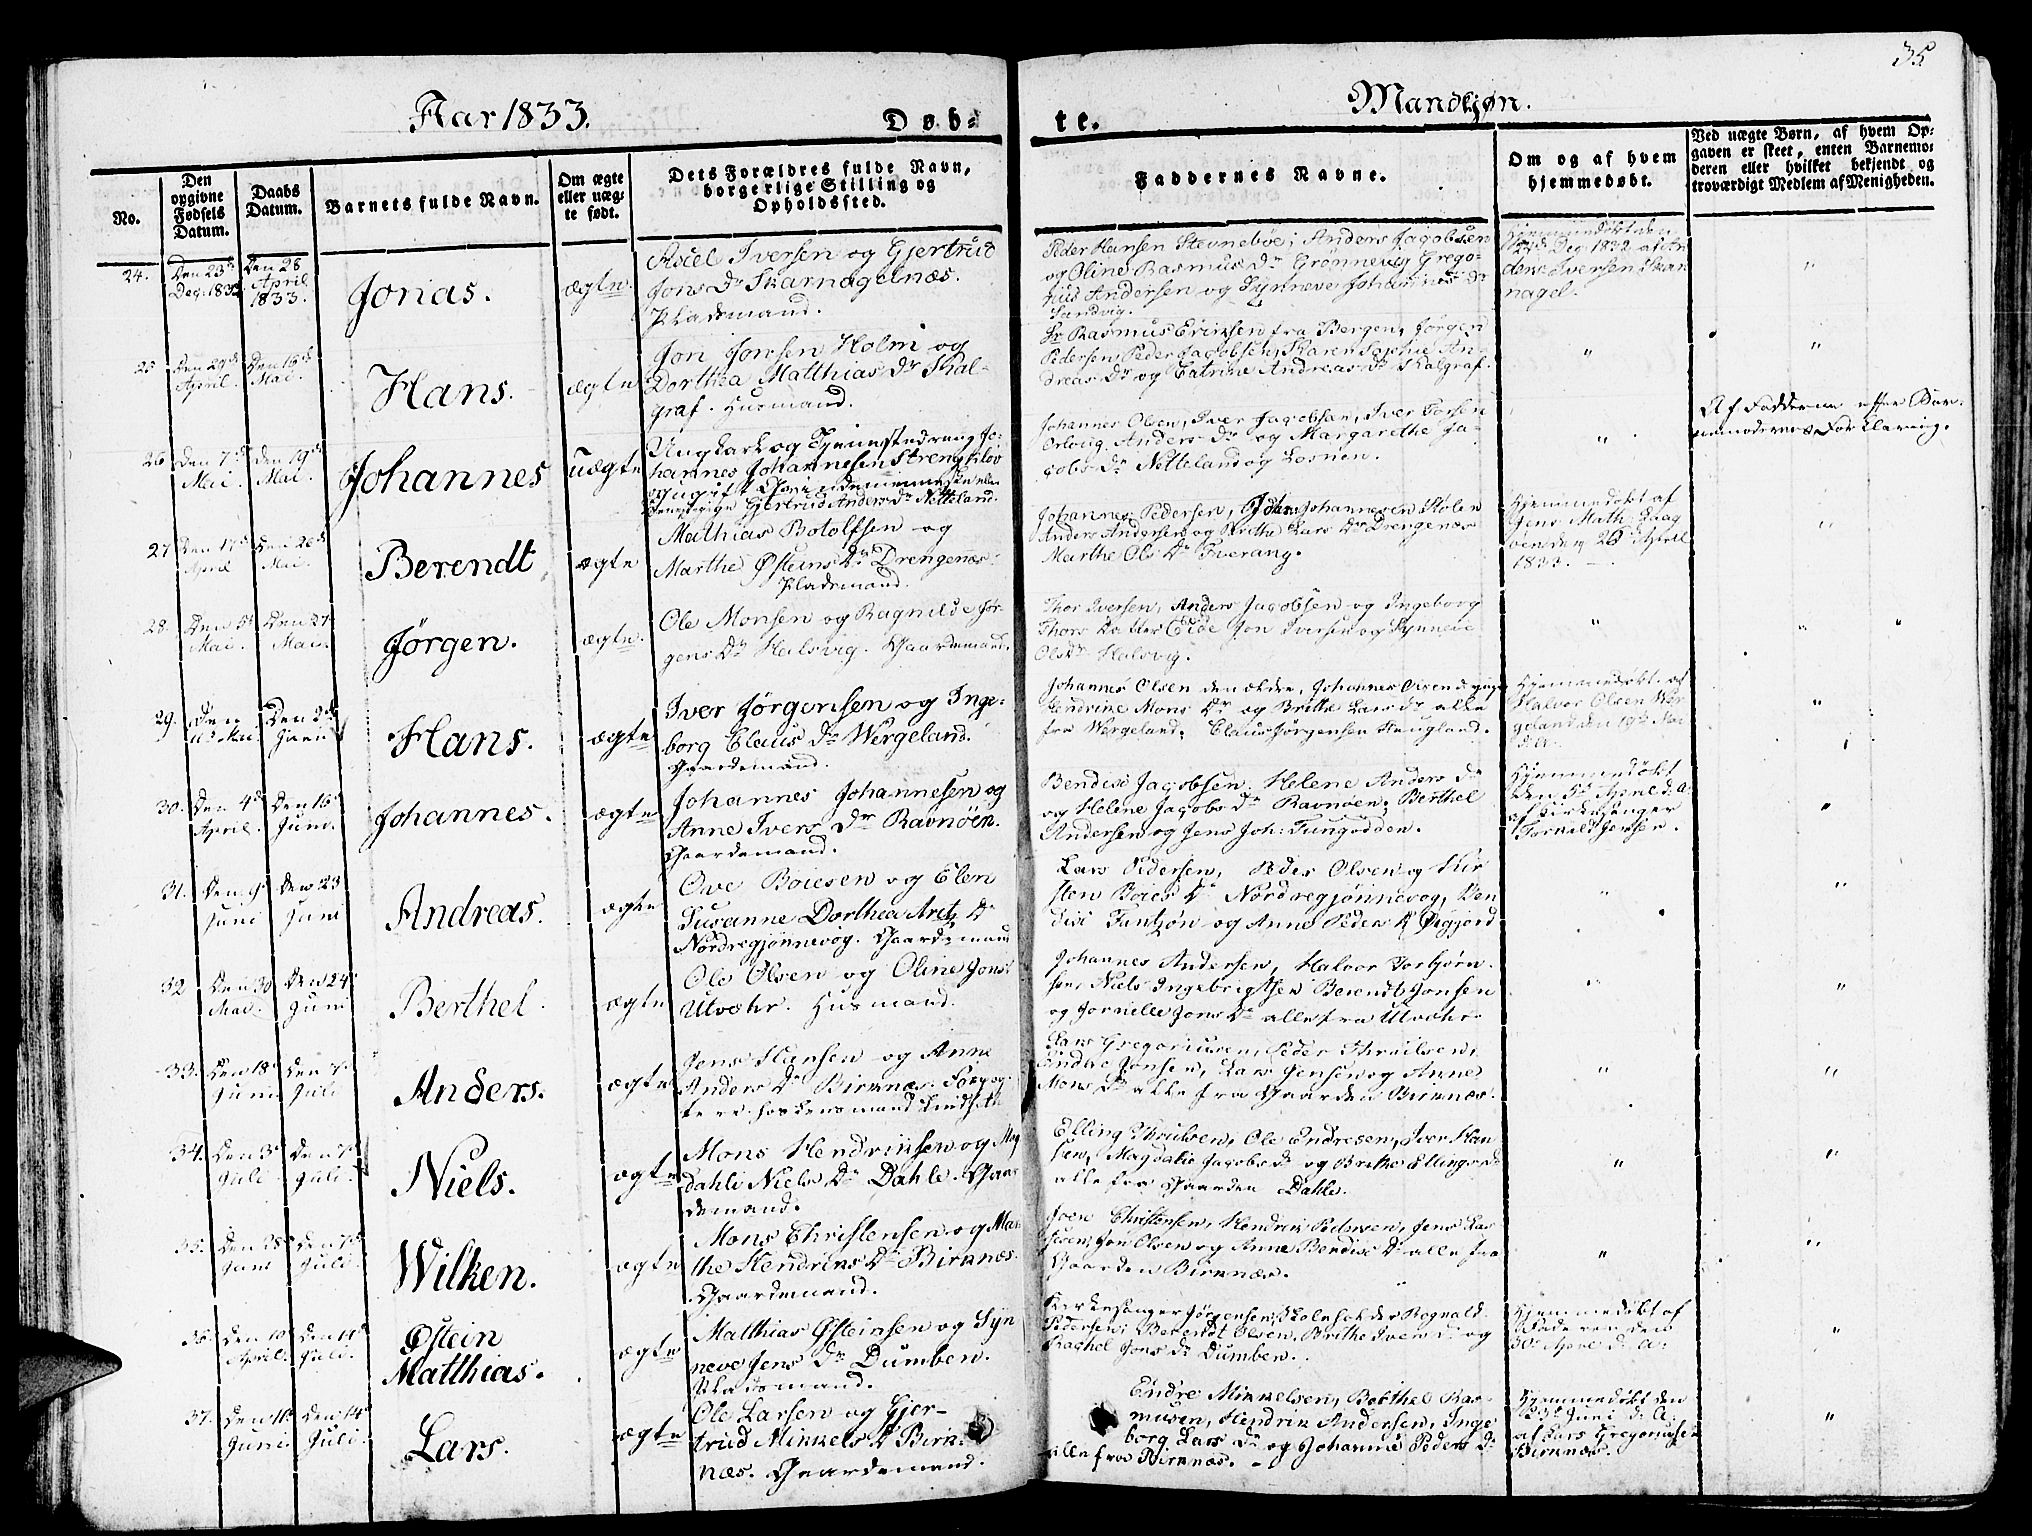 35
Aar 1833.
Døb-
te.
Mandkjøn.
No.
Den opgivne Fødsels Datum.
Daabs Datum.
Barnets fulde Navn.
Om ægte eller uæg- te født.
Dets Forældres fulde Navn, borgerlige Stilling og Opholdssted.
Faddernes Navne.
Om og af hvem hjemmedøbt.
Ved uægte Børn, af hvem Op- gaven er skeet, enten Barnemo- deren eller hvilket bekjendt og troværdigt Medlem af Menigheden.
24.
Den 23d
Dec: 1832
Den 28
April
1833.
Jonas.
ægte.
Asiel Iversen og Gjertrud
Jons Dr Skarnagelnæs.
Pladsmand.
Peder Hansen Stevnebøe; Anders Jacobsen
og Oline Rasmus Dr Grønnevig Grego-
rius Andersen og Synneve Johannes Dr
Sandvig.
Hjemmedøbt den
Dec: 1832 af An
ders Iversen Skar
nagel.
25
Den 29d
April.
Den 16d
Mai.
Hans.
ægte
Jon Jonsen Holm og
Dorthea Matthias Dr Skal-
graf. Husmand.
Sr Rasmus Eriksen fra Bergen, Jørgen
Pedersen, Peder Jacobsen, Karen Sophie An-
dreas Dr og Catrine Andreas Dr Skalgraf.
26
Den 7d
Mai.
Den 19d
Mai.
Johannes
uægte
Ungkarl og Tjenestedreng Jo-
hannes Johannesen
og ugift
Gjertrud Anders Dr Nitteland.
Johannes Olsen, Iver Jacobsen, Iver
Anders Dr og Margarethe Ja-
cobs Dr Netteland og
Af Fadderne efter Bar-
nemoderens Forklaring.
27
Den 17d
April
Den 26d
Mai.
Berendt
ægte
Mathias Botolfsen og
Marthe Østeins Dr Drengenæs.
Pladsmand.
Johannes Pedersen, Johannesen Stølen
Anders Andersen og Brithe Lars Dr Drengenæs
Marthe Ols Dr Tverang.
Hjemmedøbt af
Jens Math:
den 20 April
1833.
28.
Den 5d
Mai.
Den 27
Mai.
Jørgen.
ægte.
Ole Monsen og Ragnilde Jør-
gens Dr Halsvig. Gaardemand.
Thor Iversen, Anders Jacobsen og Ingeborg
Thors Datter Eide Jon Iversen og Synneve
Olsdr Halsvig.
29.
Den
11d Mai.
Den 2d
Juni
Hans.
ægte
Iver Jørgensen og Inge-
borg Claus Dr Wergeland.
Gaardemand.
Johannes Olsen den ældre, Johannes Olsen d: ynge
Hendrine Mons Dr og Britte Lars Dr alle
fra Wergeland. Claus Jørgensen Haugland.
Hjemmedøbt af
Halvor Olsen Wer
geland den 19d Mai
d: A:
30.
Den 4d
April.
Den 16d
Juni.
Johannes.
ægte
Johannes Johannesen og
Anne Ivers Dr Ravnøen.
Gaardemand.
Bendix Jacobsen, Helene Anders Dr
og Helene Jacobs Dr Ravnøen, Berthel
Andersen og Jens Joh: Tungodden.
Hjemmedøbt
den 5d April d. A.
af Kirkesanger
Jensen.
31.
Den 9d
Juni
Den 23
Juni
Andreas.
ægte
Ove Boiesen og Elen
Susanne Dorthea Aretz Dr
Nordregjønnevog. Gaardemand
Lars Pedersen, Peder Olsen og Kir
sten Boies Dr Nordregjønnevog, Ben
dix og Anne Peders Dr
32
Den 30
Mai.
Den 24d
Juni
Berthel.
ægte
Ole Olsen og Oline Jons
Utvehr. Husmand.
Johannes Andersen, Halvor Torbjørn-
sen, Niels Ingebrigtsen Berendt Jonsen
og Jons Dr alle fra Utvehr
33.
Den 18d
Juni
Den 7d
Juli
Anders.
ægte
Jens Hansen og Anne
Anders Dr Birknæs.
Lars Gregoriusen, Peder
Endre Jonsen, Lars Jensen og Anne
Mons Dr alle fra Gaarden Birknæs.
34.
Den 3d
Juli
Den 7d
Juli.
Niels.
ægte
Mons Hendriksen og Mag
dahli Niels Dr Dahle. Gaar
demand.
Elling Ole Endresen, Iver Han
sen, Magdalie Jacobs Dr og Brithe Ellings Dr
alle fra Gaarden Dahle.
35.
Den 28d
Juni
Den 7d
Juli.
Wilken.
ægte
Mons Christensen og Mar
the Hendriks Dr Birknæs.
Gaardemand.
Joen Christensen, Hendrik Pedersen, Jens Lar
sen, Jon Olsen og Anne Bendix Dr alle fra
Gaarden Birknæs.
36.
Den 10
April.
Den 14d
Juli.
Østein
Matthias.
ægte
Matthias Østeinsen og Syn
neve Jens Dr Dumben.
Pladsmand.
Kirkesanger Jørgensen, Skoleholder Rognald
Pedersen, Berendt Olsen, Brithe Ivers Dr og
Rachel Jons Dr Dumben.
Hjemmedøbt af
Faderen den
30d April d. A.
37.
Den 11d
Juni.
Den 14d
Juli.
Lars.
ægte
Ole Larsen og Gjer-
trud Mikkels Dr Birk-
næs. Gaardemand.
Endre Mikkelsen, Berthel Ras-
musen, Hendrik Andersen, Inge
borg Lars Dr og Johanne Peders Dr
alle fra Birknæs.
Hjemmedøbt den
23d Juni d. A.
af Lars Gregoriusen
Birknæs.